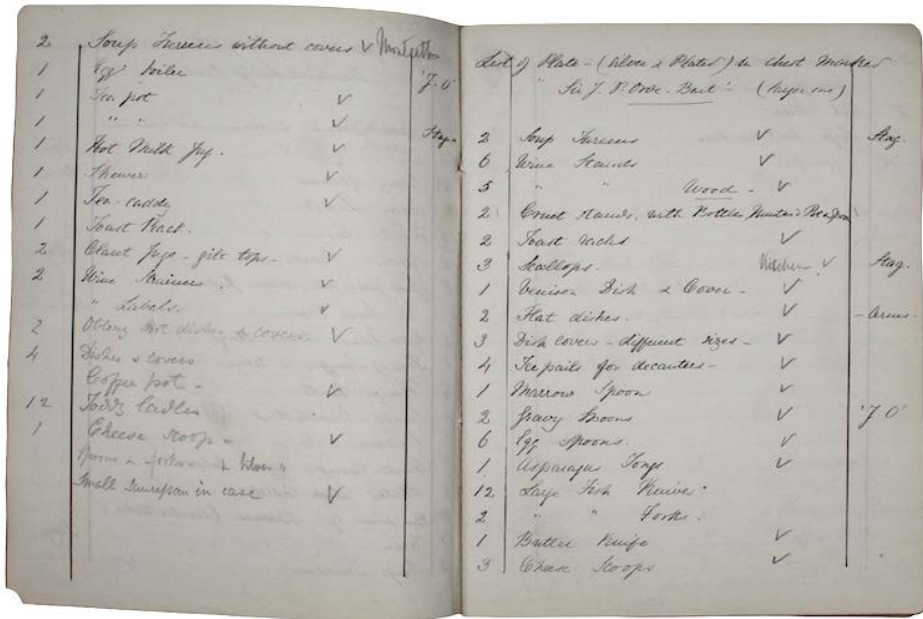 2 Soup Tureens without covers ✓
1 Egg boiler 'J.O'
1 Tea pot ✓
1 " " ✓ Stag -
1 Hot Milk Jug. ✓
1 Skewer ✓
1 Tea-caddy ✓
1 Toast Rack.
2 Claret Jugs - gilt tops - ✓
2 Wine Strainers. ✓
" Labels. ✓
2 Oblong Hot dishes & covers ✓
4 Dishes & covers
Coffee pot - ✓
12 Toddy ladles
1 Cheese scoop - ✓
Spoons & forks - Silver "
Small Saucepan in case ✓
List of Plate - (Silver & Plated) in chest Marked
" Sir J. P. Orde. Bart " (larger one)
2 Soup Tureens ✓ Stag.
6 Wine Stands ✓
5 " " Wood - ✓
2 Cruet stands, with Bottles,
2 Toast racks ✓
3 Scallops. Kitchen ✓ Stag.
1 Venison Dish & Cover - ✓
2 Flat dishes. ✓ - Arms.
3 Dish covers - different sizes - ✓
4 Ice pails for decanters - ✓
1 Marrow Spoon ✓
2 Gravy Spoons ✓ 'J O'
6 Egg Spoons. ✓
1. Asparagus Tongs ✓
12 Large Fish Knives "
2 " " Forks.
1 Butter Knife ✓
3 Cheese Scoops ✓